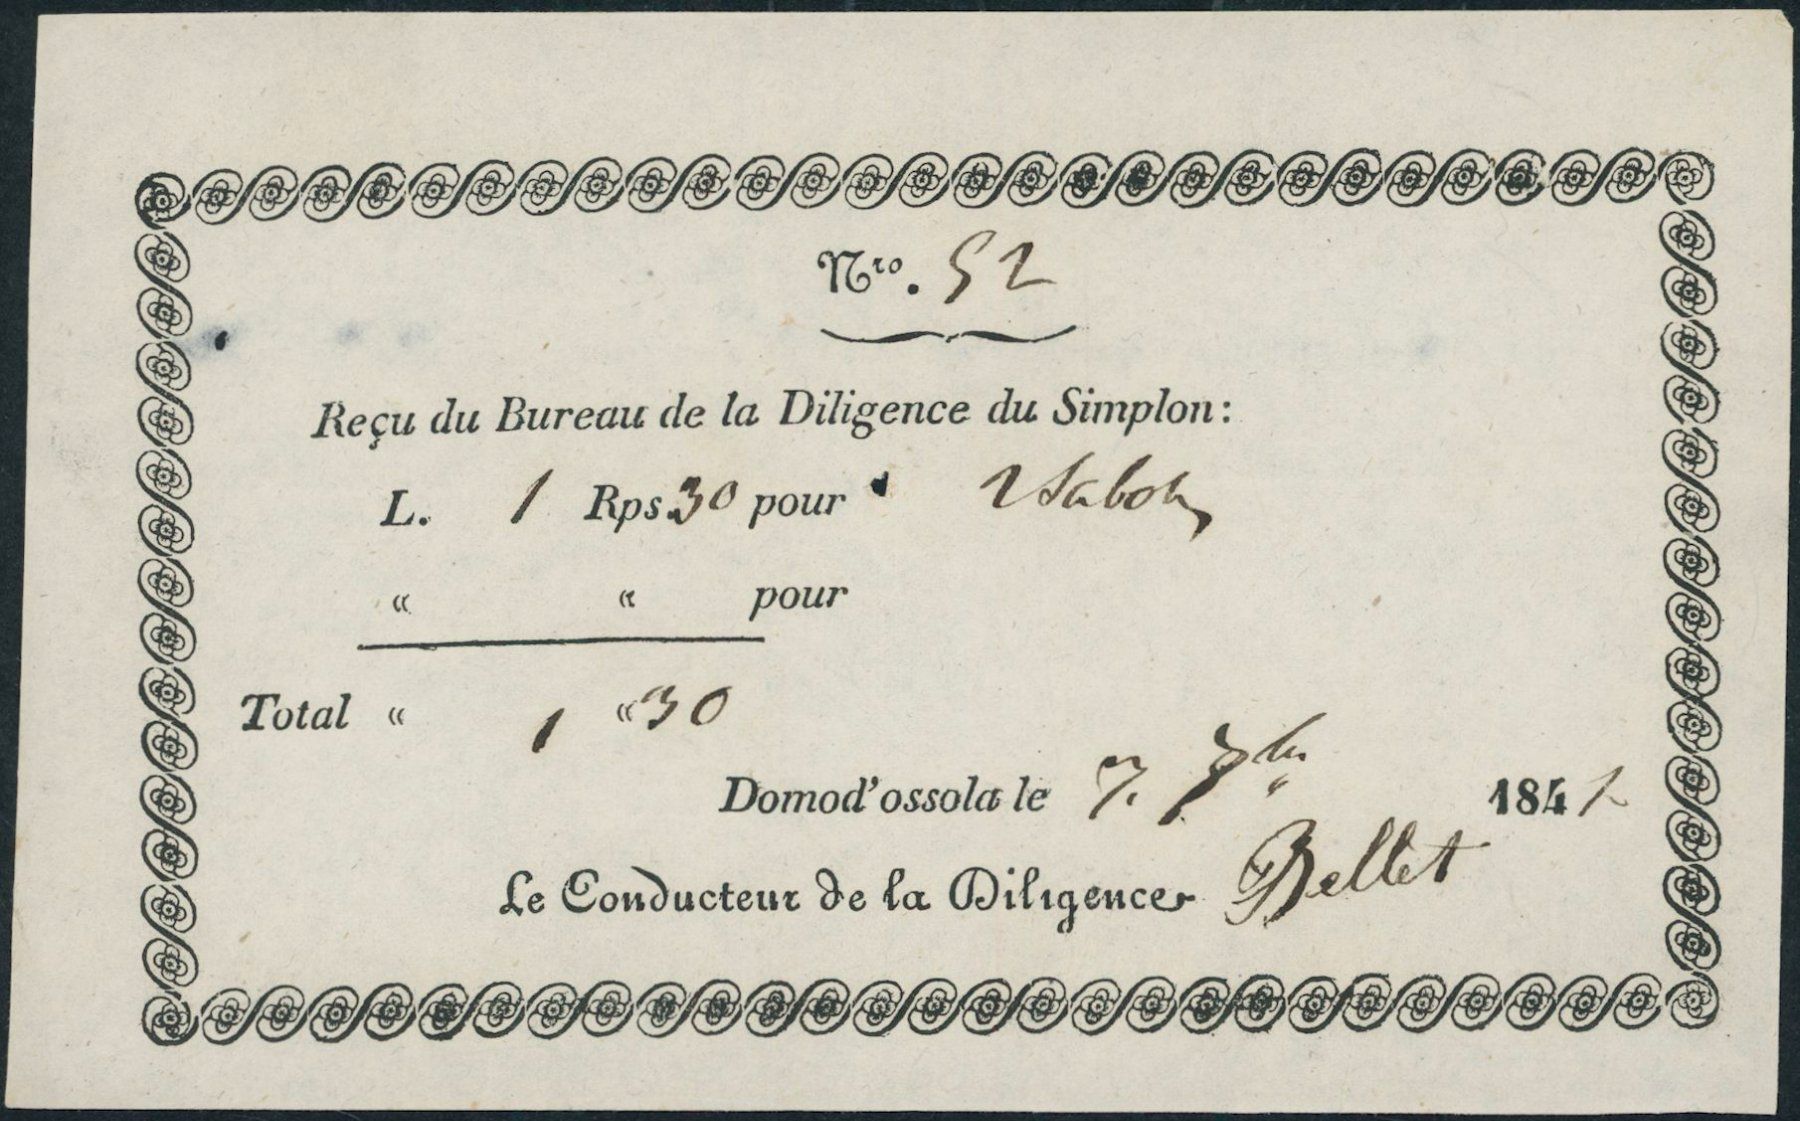 Nro. 52
Reçu du Bureau de la Diligence du Simplon:
L. 1 Rps. 30 pour
" " pour
Total " 1 " 30
Domod'ossola le 7. 7br 184
Le Conducteur de la Diligence Bellet